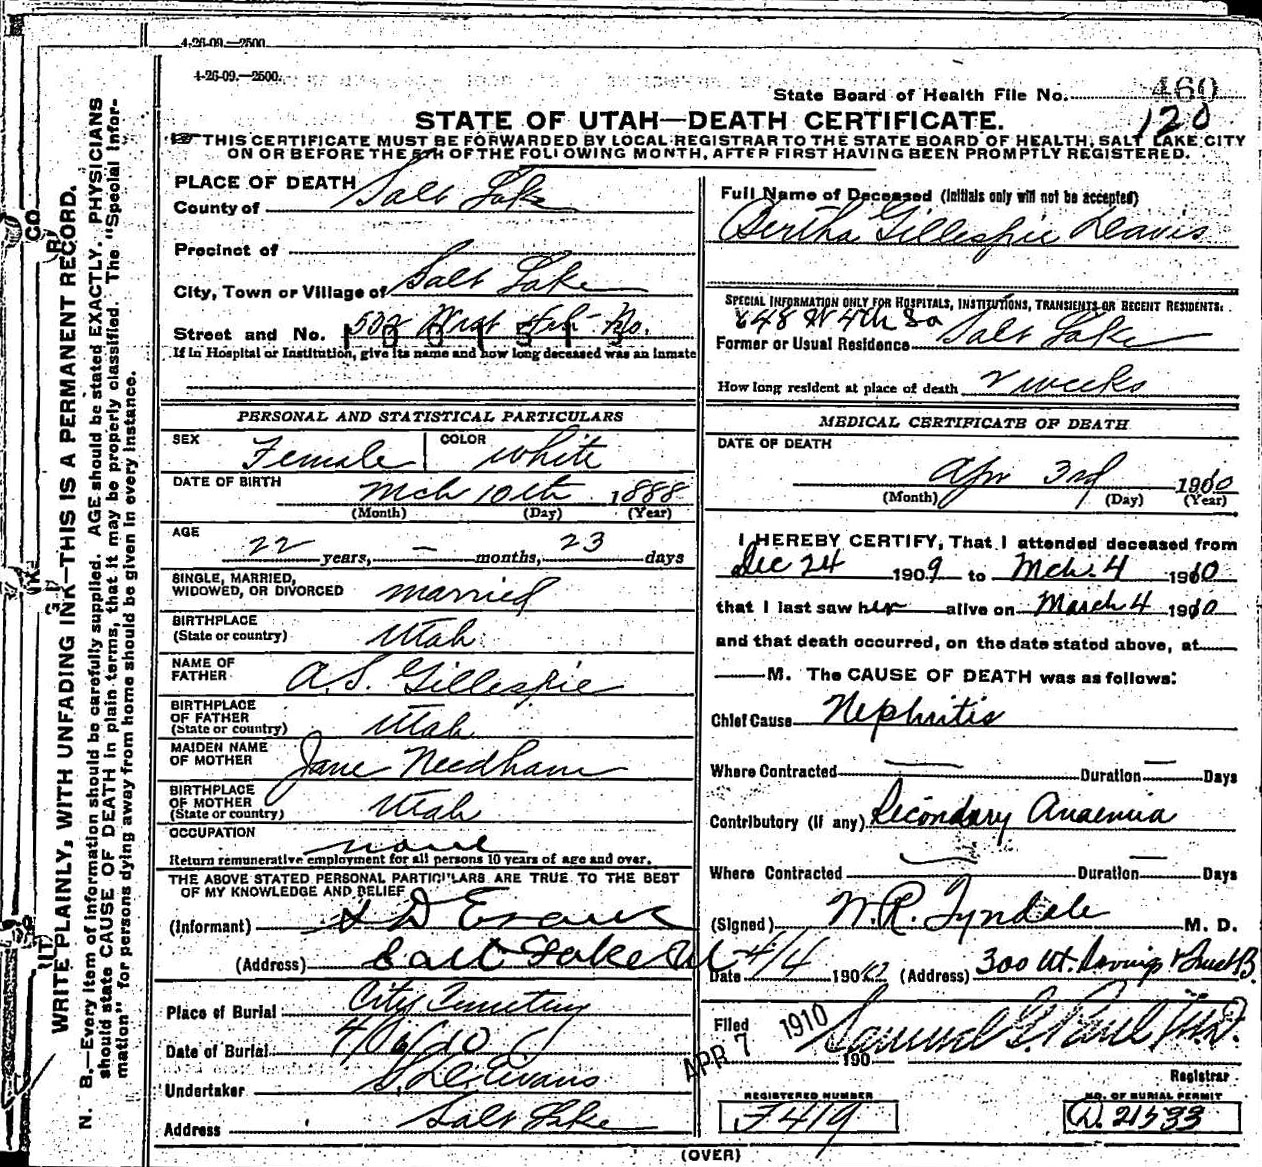 4-26-09.—2500.
4-26-09.—2500.
State Board of Health File No. 460
120
STATE OF UTAH—DEATH CERTIFICATE.
THIS CERTIFICATE MUST BE FORWARDED BY LOCAL REGISTRAR TO THE STATE BOARD OF HEALTH, SALT LAKE CITY
ON OR BEFORE THE 5TH OF THE FOLLOWING MONTH, AFTER FIRST HAVING BEEN PROMPTLY REGISTERED.
WRITE PLAINLY, WITH UNFADING INK—THIS IS A PERMANENT RECORD.
N. B.—Every item of information should be carefully supplied. AGE should be stated EXACTLY. PHYSICIANS
should state CAUSE OF DEATH in plain terms, that it may be properly classified. The "Special Infor-
mation" for persons dying away from home should be given in every instance.
PLACE OF DEATH
County of Salt Lake
Precinct of
City, Town or Village of Salt Lake
Street and No. 502 West 4th No.
If in Hospital or Institution, give its name and how long deceased was an inmate
PERSONAL AND STATISTICAL PARTICULARS
SEX Female COLOR White
DATE OF BIRTH Mch 10th 1888
(Month) (Day) (Year)
AGE
22 years, — months, 23 days
SINGLE, MARRIED,
WIDOWED, OR DIVORCED married
BIRTHPLACE
(State or country) Utah
NAME OF
FATHER A. S. Gillespie
BIRTHPLACE
OF FATHER
(State or country) Utah
MAIDEN NAME
OF MOTHER Jane Needham
BIRTHPLACE
OF MOTHER
(State or country) Utah
OCCUPATION none
Return remunerative employment for all persons 10 years of age and over.
THE ABOVE STATED PERSONAL PARTICULARS ARE TRUE TO THE BEST
OF MY KNOWLEDGE AND BELIEF
(Informant) S D Evans
(Address) Salt Lake Ut
Place of Burial City Cemetery
Date of Burial 4/6/10
Undertaker S. D. Evans
Address Salt Lake
Full Name of Deceased (Initials only will not be accepted)
Bertha Gillespie Deavis
SPECIAL INFORMATION ONLY FOR HOSPITALS, INSTITUTIONS, TRANSIENTS OR RECENT RESIDENTS:
648 W 4th So
Former or Usual Residence Salt Lake
How long resident at place of death 2 weeks
MEDICAL CERTIFICATE OF DEATH
DATE OF DEATH
Apr 3rd 1910
(Month) (Day) (Year)
I HEREBY CERTIFY, That I attended deceased from
Dec 24 1909 to Mch. 4 1910
that I last saw her alive on March 4 1910
and that death occurred, on the date stated above, at
M. The CAUSE OF DEATH was as follows:
Chief Cause Nephritis
Where Contracted — Duration — Days
Contributory (if any) Secondary Anaemia
Where Contracted — Duration — Days
(Signed) W. R. Tyndale M. D.
Date 4/4 1910 (Address) 300 Ut. Savings & Trust B.
Filed APR 7 1910 190 Samuel G. Paul M.D.
Registrar
REGISTERED NUMBER
F 419
NO. OF BURIAL PERMIT
D. 21533
(OVER)